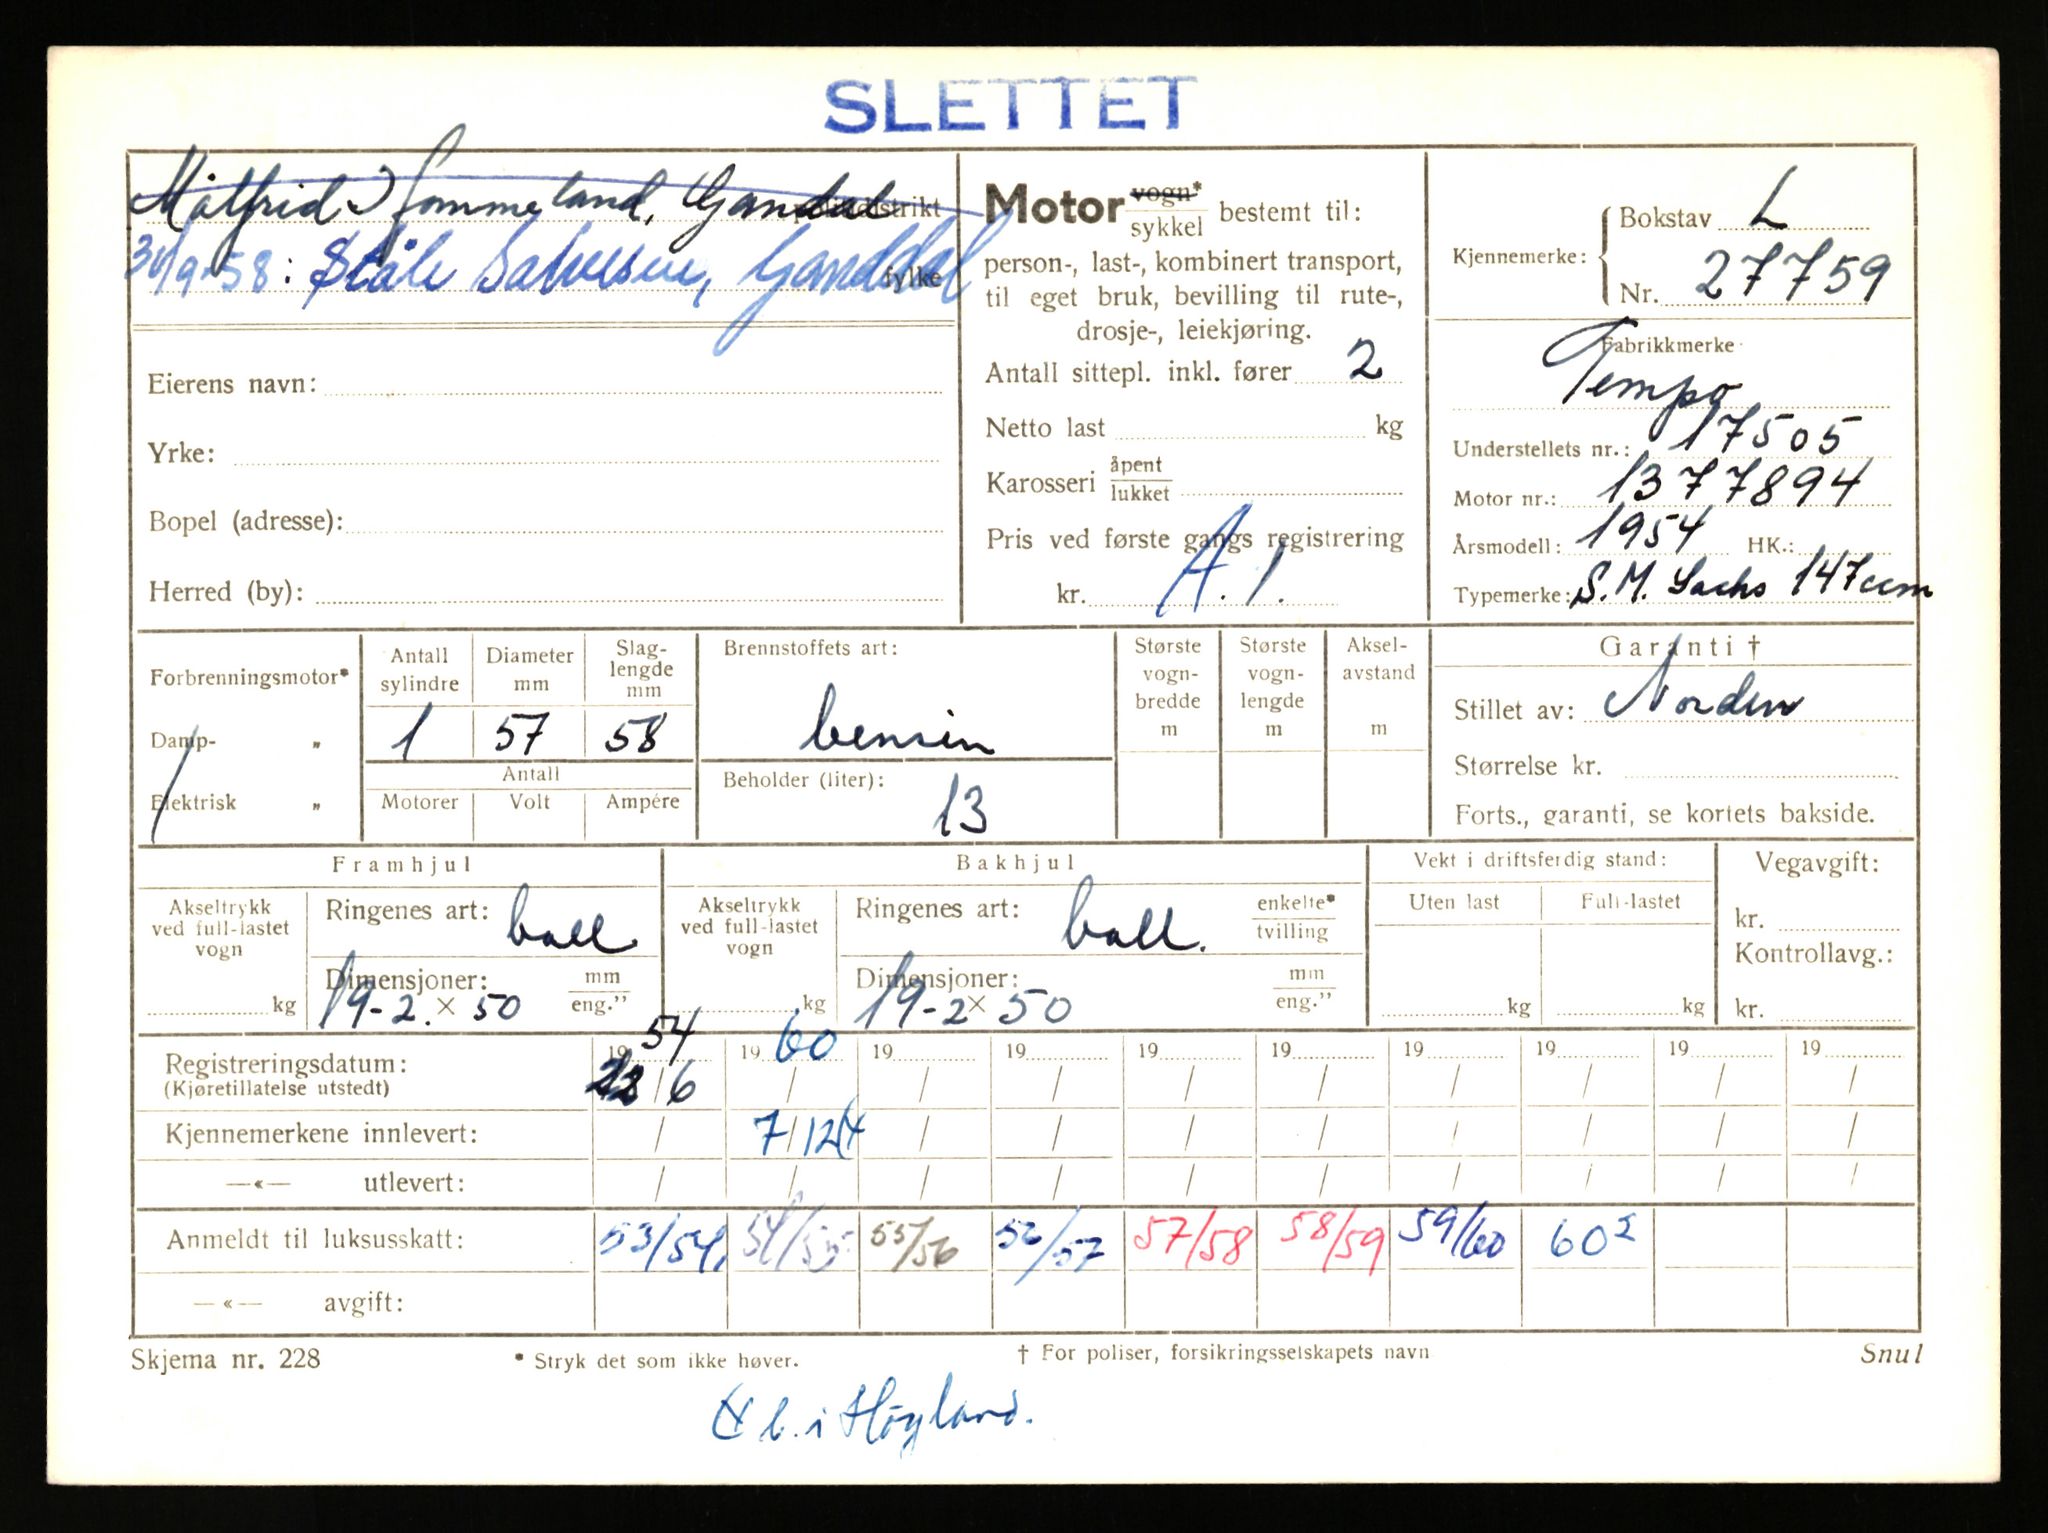 SLETTET
Målfrid Fommeland, Gandal politidistrikt
30/9-58: Ståle Salvesen, Ganddal fylke
Eierens navn:
Yrke:
Bopel (adresse):
Herred (by):
Motor vogn* / sykkel bestemt til:
person-, last-, kombinert transport,
til eget bruk, bevilling til rute-,
drosje-, leiekjøring.
Antall sittepl. inkl. fører 2
Netto last kg
Karosseri åpent / lukket
Pris ved første gangs registrering
kr. A. 1.
Kjennemerke: Bokstav L
Nr. 27759
Fabrikkmerke
Tempo
Understellets nr.: 17505
Motor nr.: 1377894
Årsmodell: 1954 HK.:
Typemerke: S.M. Sachs 147ccm
Forbrenningsmotor*
Damp- „
Elektrisk „
Antall sylindre Diameter mm Slag-lengde mm
1 57 58
Antall
Motorer Volt Ampére
Brennstoffets art:
bensin
Beholder (liter):
13
Største vogn-bredde m
Største vogn-lengde m
Aksel-avstand m
Garanti †
Stillet av: Norden
Størrelse kr.
Forts., garanti, se kortets bakside.
Framhjul
Akseltrykk ved full-lastet vogn
kg
Ringenes art: ball
Dimensjoner: mm / eng."
19-2.×50
Bakhjul
Akseltrykk ved full-lastet vogn
kg
Ringenes art: ball. enkelte* / tvilling
Dimensjoner: mm / eng."
19-2×50
Vekt i driftsferdig stand:
Uten last Full-lastet
kg kg
Vegavgift:
kr.
Kontrollavg.:
kr.
19 54 19 60 19 19 19 19 19 19 19 19
Registreringsdatum: / 6 / / / / / / / / /
(Kjøretillatelse utstedt)
Kjennemerkene innlevert: / 7/12 / / / / / / / /
—«— utlevert: / / / / / / / / / /
Anmeldt til luksusskatt: 53/54 54/55 55/56 56/57 57/58 58/59 59/60 60²
—«— avgift:
Skjema nr. 228 * Stryk det som ikke høver. † For poliser, forsikringsselskapets navn Snul
b. i Høyland.